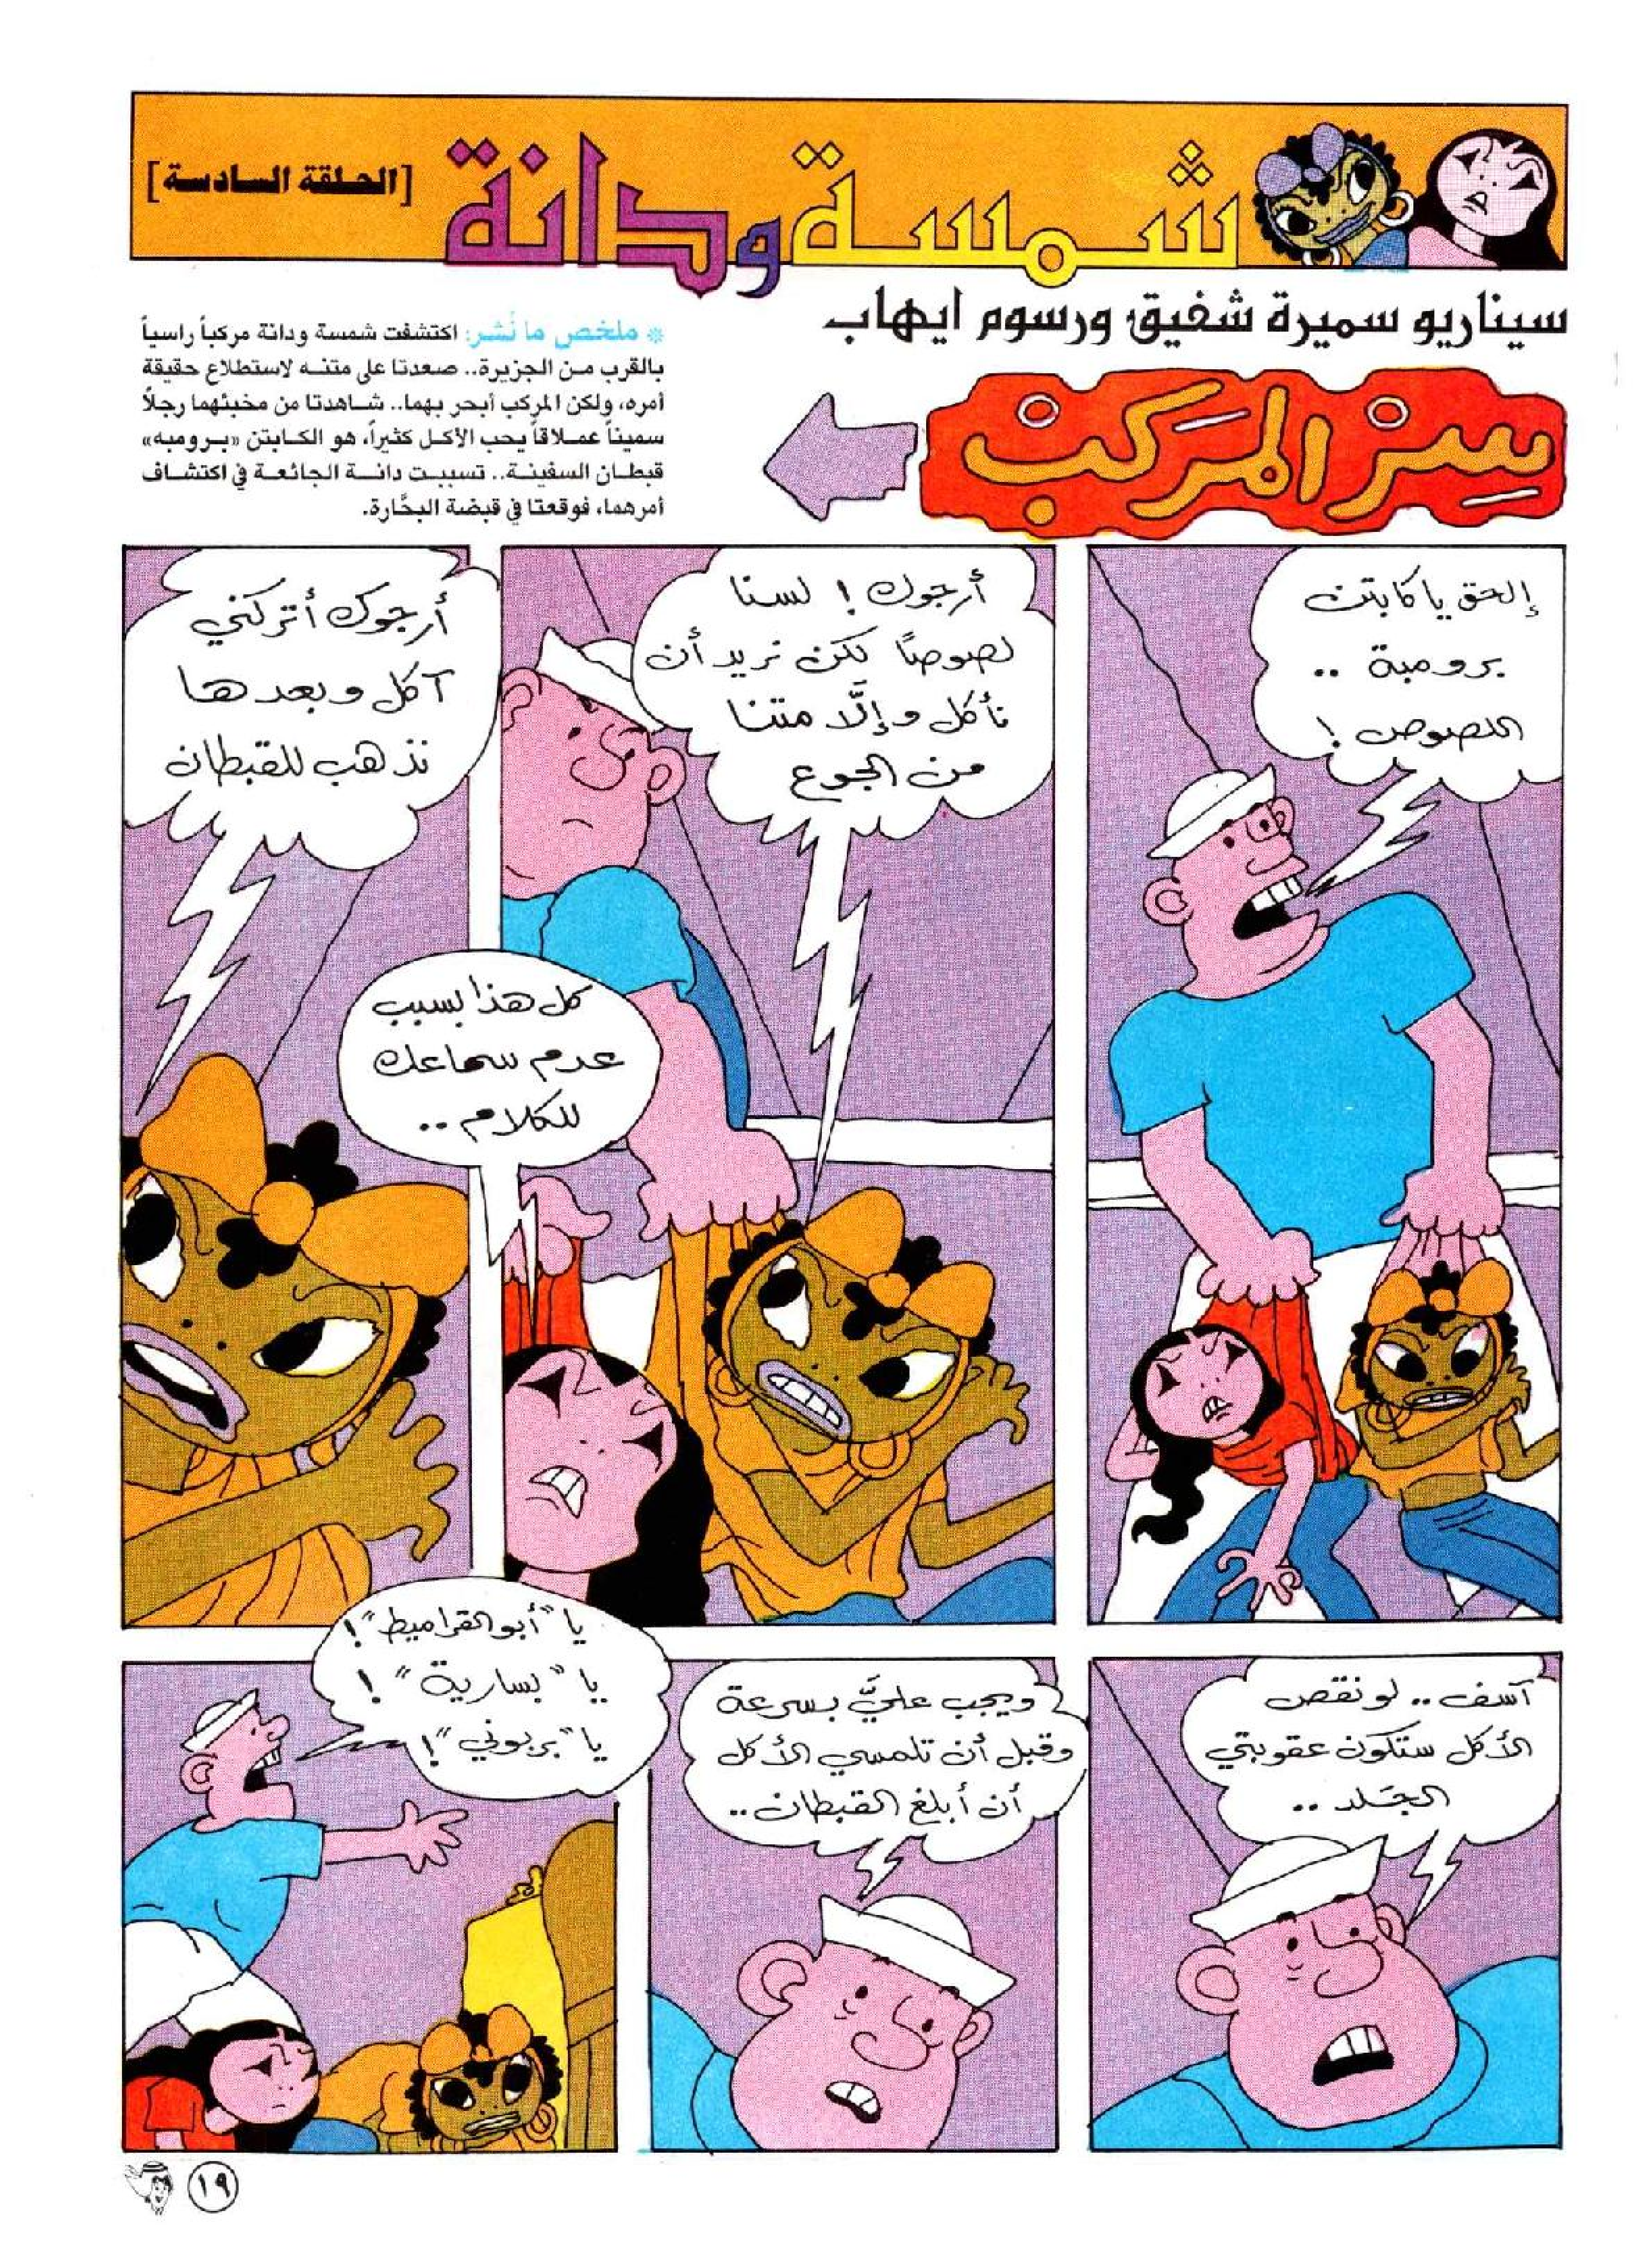 شمسة ودانة
[الحلقة السادسة]
سيناريو سميرة شفيق ورسوم ايهاب
سِر المَركب
* ملخص ما نُشر: اكتشفت شمسة ودانة مركباً راسياً
بالقرب من الجزيرة.. صعدتا على متنه لاستطلاع حقيقة
أمره، ولكن المركب أبحر بهما.. شاهدتا من مخبئهما رجلاً
سميناً عملاقاً يحب الأكل كثيراً، هو الكابتن «برومبه»
قبطان السفينة.. تسببت دانة الجائعة في اكتشاف
أمرهما، فوقعتا في قبضة البحَّارة.
إلحق يا كابتن
برومبة ..
اللصوص !
أرجوك ! لسنا
لصوصًا لكن نريد أن
نأكل وإلَّا متنا
من الجوع
كل هذا بسبب
عدم سماعك
للكلام ..
أرجوك أتركني
آكل وبعدها
نذهب للقبطان
آسف .. لو نقص
الأكل ستكون عقوبتي
الجَلد ..
ويجب عليَّ بسرعة
وقبل أن تلمسي الأكل
أن أبلغ القبطان ..
يا "أبو القراميط" !
يا "بسارية" !
يا "بربوني" !
١٩